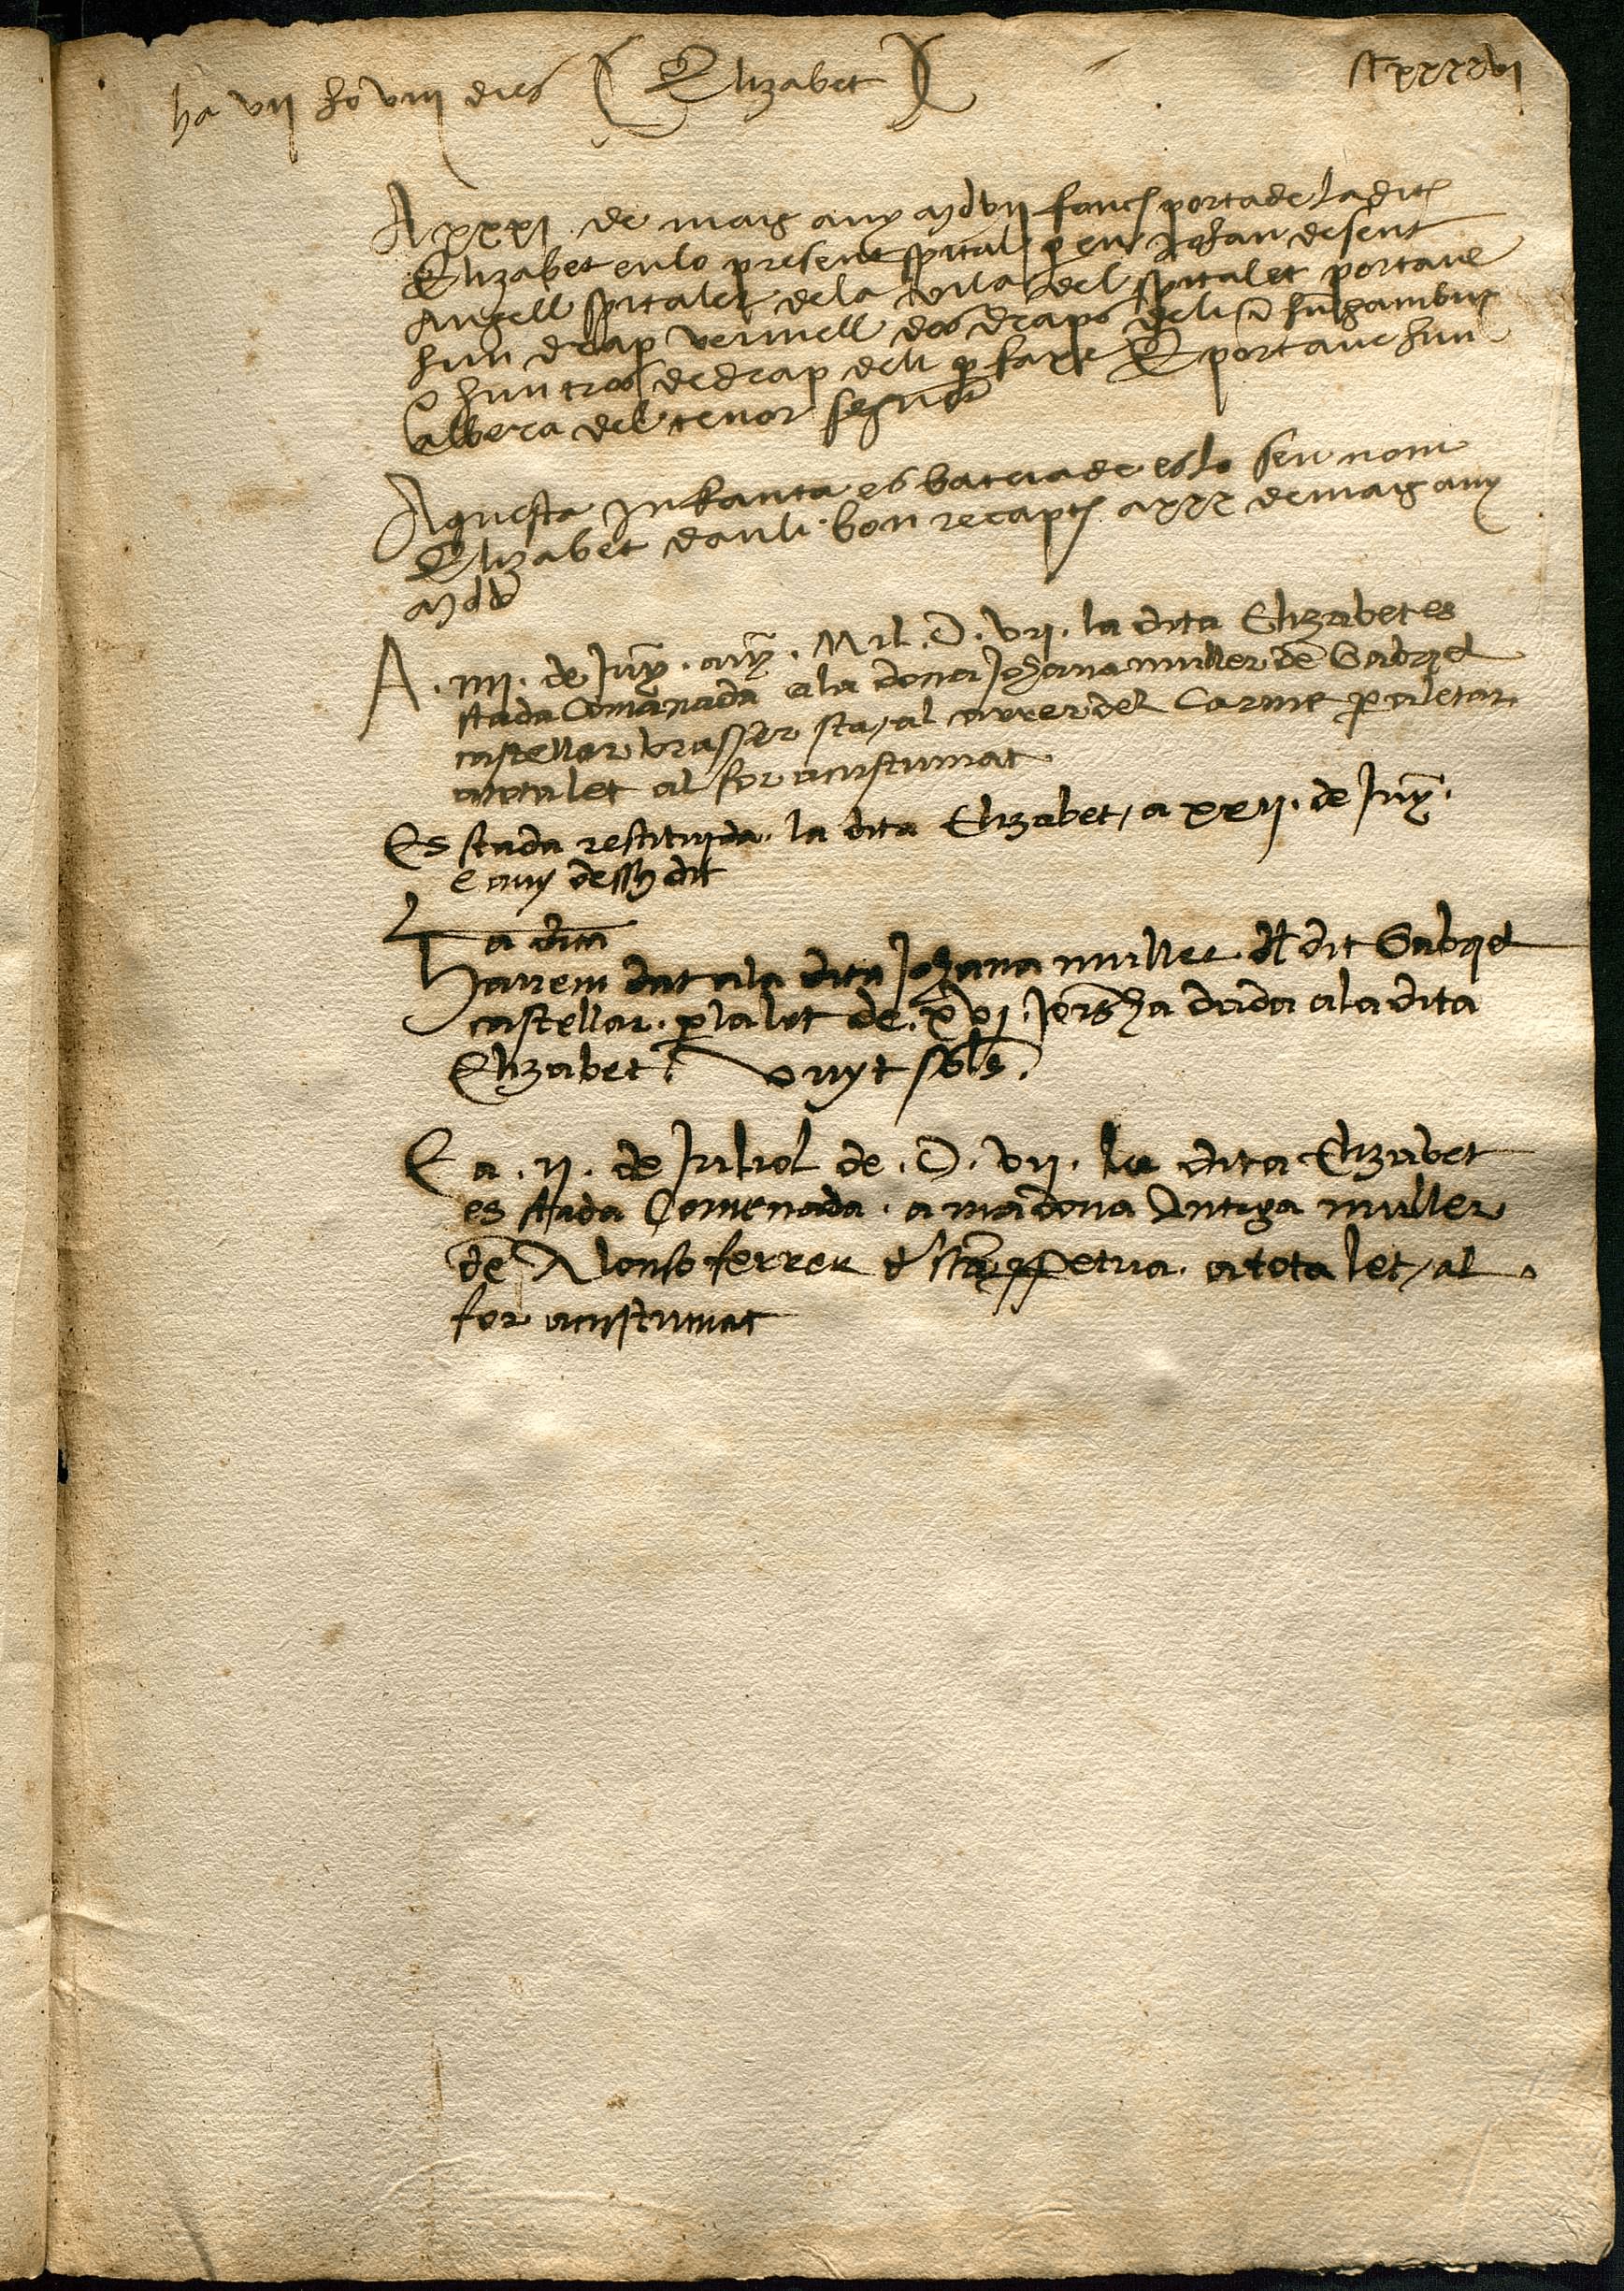 ha vii ho viii dies ( Elizabet ) xxxxvi
A xxxi de maig any mdvii fonch portade la dita
Elizabet en lo present spital per en Johan desent
Angell spitaler de la vila del spitalet portave
hun drap vermell dos draps de li e hun gambux
e hun tros de drap de li per faxe E portave hun
albera del tenor seguent
Aquesta Infanta es bateiade es lo seu nom
Elizabet dauli bon recapte a xxx de maig any
mdvii
A . iiii . de Juny . any . Mil . D . vii . la dita Elizabet es
stada Comanada a la dona Johana muller den Gabriel
castellar brasser sta / al carrer del Carme per aletar
a tota let al for acustumat
Es stada restituida . la dita Elizabet / a xxii . de Juny .
e any dessus dit
La dita
havem dat a la dita Johana muller del dit Gabriel
castellar . per la let de . xvi . Jorns ha dada a la dita
Elizabet . vuyt sols .
E a . ii . de Juliol de . D . vii . la dita Elizabet
es stada Comenada . a madona Antiga muller
den Alonso ferrer de petria . a tota let / al
for acustumat